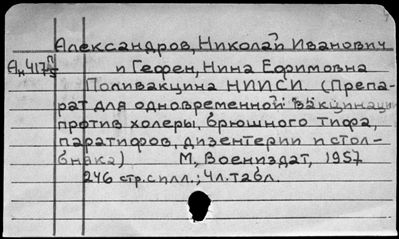 Александров, Николай Иванович
Ан 4175
и Гефен, Нина Ефимовна
Поливакцина НИИСИ. (Препа-
рат для одновременной вакцинации
против холеры, брюшного тифа,
паратифов, дизентерии и столб-
бняка) М, Воениздат, 1957
246 стр. с илл.; 4л. табл.